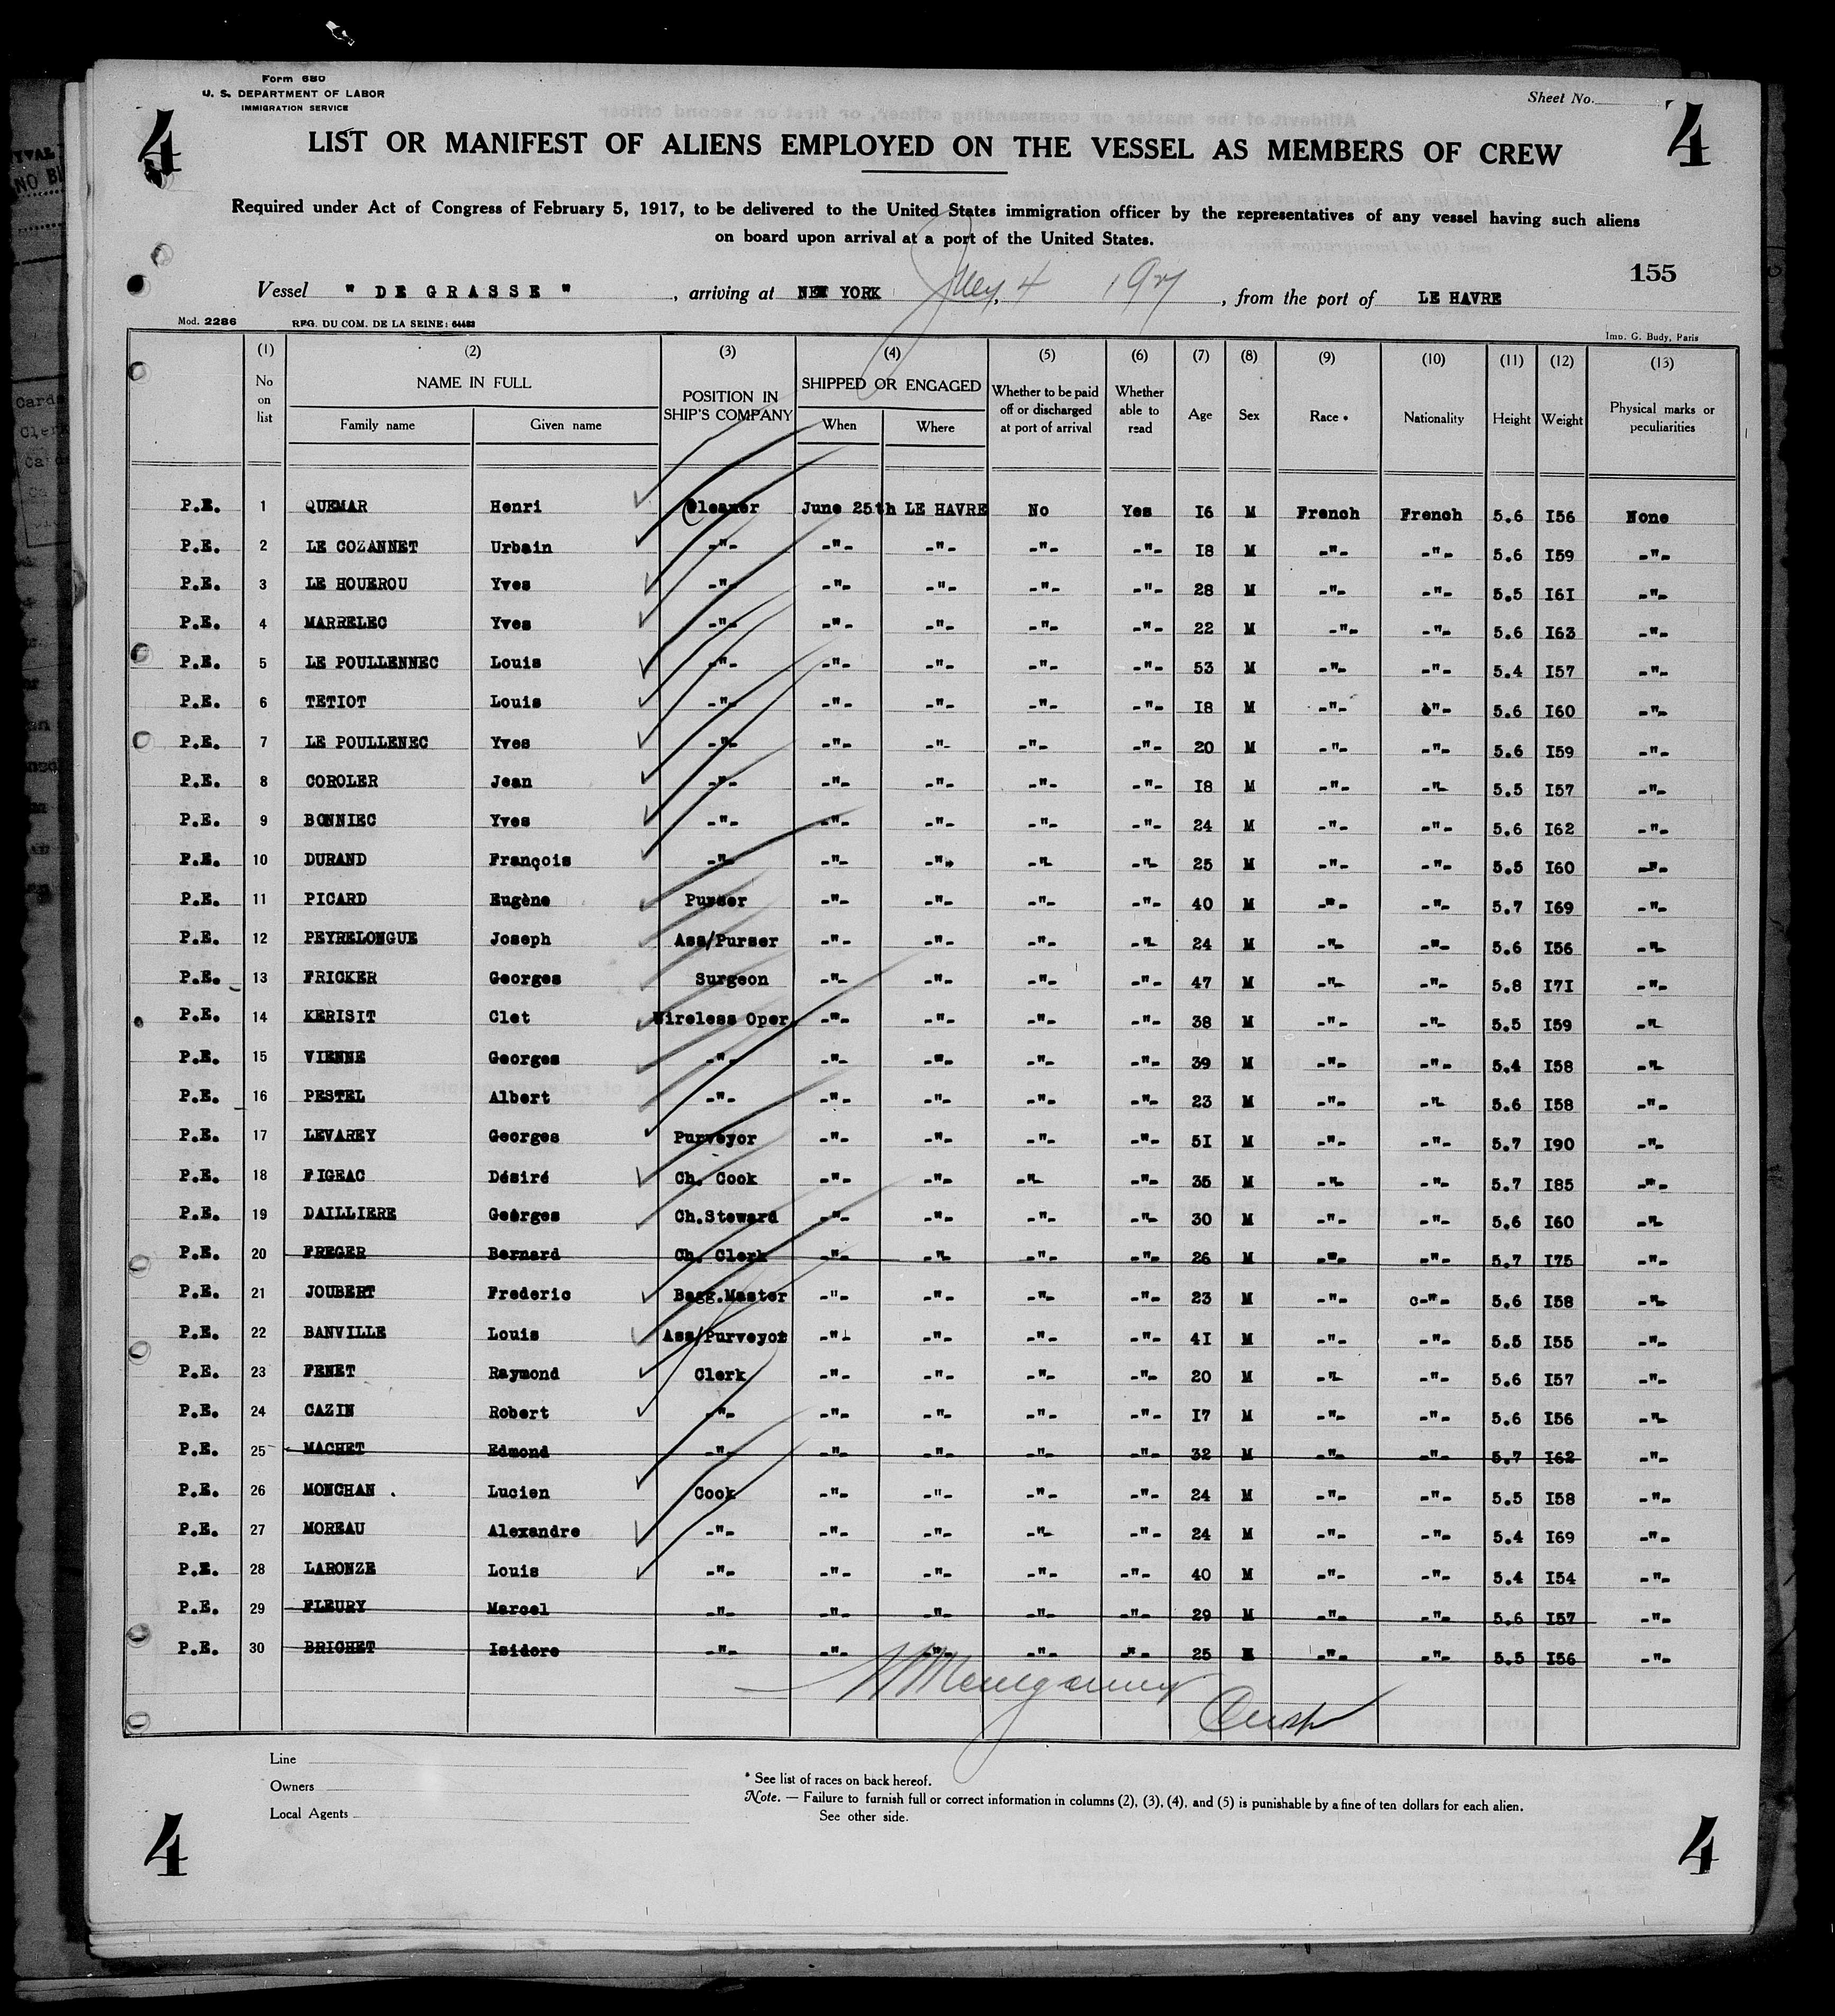 Form 680
U. S. DEPARTMENT OF LABOR
IMMIGRATION SERVICE
Sheet No.
4 4
LIST OR MANIFEST OF ALIENS EMPLOYED ON THE VESSEL AS MEMBERS OF CREW
Required under Act of Congress of February 5, 1917, to be delivered to the United States immigration officer by the representatives of any vessel having such aliens
on board upon arrival at a port of the United States.
155
Vessel " DE GRASSE " , arriving at NEW YORK July 4, 1927, from the port of LE HAVRE
Mod. 2286 REG. DU COM. DE LA SEINE: 64483 Imp. G. Budy, Paris
(1) No on list (2) NAME IN FULL Family name Given name (3) POSITION IN SHIP'S COMPANY (4) SHIPPED OR ENGAGED When Where (5) Whether to be paid off or discharged at port of arrival (6) Whether able to read (7) Age (8) Sex (9) Race * (10) Nationality (11) Height (12) Weight (13) Physical marks or peculiarities
P.E. 1 QUEMAR Henri Cleaner June 25th LE HAVRE No Yes I6 M French French 5.6 I56 None
P.E. 2 LE COZANNET Urbain -"- -"- -"- -"- -"- I8 M -"- -"- 5.6 I59 -"-
P.E. 3 LE HOUEROU Yves -"- -"- -"- -"- -"- 28 M -"- -"- 5.5 I6I -"-
P.E. 4 MARRELEC Yves -"- -"- -"- -"- -"- 22 M -"- -"- 5.6 I63 -"-
P.E. 5 LE POULLENNEC Louis -"- -"- -"- -"- -"- 53 M -"- -"- 5.4 I57 -"-
P.E. 6 TETIOT Louis -"- -"- -"- -"- -"- I8 M -"- -"- 5.6 I60 -"-
P.E. 7 LE POULLENEC Yves -"- -"- -"- -"- -"- 20 M -"- -"- 5.6 I59 -"-
P.E. 8 COROLER Jean -"- -"- -"- -"- -"- I8 M -"- -"- 5.5 I57 -"-
P.E. 9 BONNIEC Yves -"- -"- -"- -"- -"- 24 M -"- -"- 5.6 I62 -"-
P.E. 10 DURAND François -"- -"- -"- -"- -"- 25 M -"- -"- 5.5 I60 -"-
P.E. 11 PICARD Eugène Purser -"- -"- -"- -"- 40 M -"- -"- 5.7 I69 -"-
P.E. 12 PEYRELONGUE Joseph Ass/Purser -"- -"- -"- -"- 24 M -"- -"- 5.6 I56 -"-
P.E. 13 FRICKER Georges Surgeon -"- -"- -"- -"- 47 M -"- -"- 5.8 I7I -"-
P.E. 14 KERISIT Clet Wireless Oper. -"- -"- -"- -"- 38 M -"- -"- 5.5 I59 -"-
P.E. 15 VIENNE Georges -"- -"- -"- -"- -"- 39 M -"- -"- 5.4 I58 -"-
P.E. 16 PESTEL Albert -"- -"- -"- -"- -"- 23 M -"- -"- 5.6 I58 -"-
P.E. 17 LEVAREY Georges Purveyor -"- -"- -"- -"- 5I M -"- -"- 5.7 I90 -"-
P.E. 18 FIGEAC Désiré Ch. Cook -"- -"- -"- -"- 35 M -"- -"- 5.7 I85 -"-
P.E. 19 DAILLIERE Georges Ch.Steward -"- -"- -"- -"- 30 M -"- -"- 5.6 I60 -"-
P.E. 20 FREGER Bernard Ch. Clerk -"- -"- -"- -"- 26 M -"- -"- 5.7 I75 -"-
P.E. 21 JOUBERT Frederic Bagg.Master -"- -"- -"- -"- 23 M -"- c-"- 5.6 I58 -"-
P.E. 22 BANVILLE Louis Ass/Purveyor -"- -"- -"- -"- 4I M -"- -"- 5.5 I55 -"-
P.E. 23 FENET Raymond Clerk -"- -"- -"- -"- 20 M -"- -"- 5.6 I57 -"-
P.E. 24 CAZIN Robert -"- -"- -"- -"- -"- I7 M -"- -"- 5.6 I56 -"-
P.E. 25 MACHET Edmond -"- -"- -"- -"- -"- 32 M -"- -"- 5.7 I62 -"-
P.E. 26 MONCHAN . Lucien Cook -"- -"- -"- -"- 24 M -"- -"- 5.5 I58 -"-
P.E. 27 MOREAU Alexandre -"- -"- -"- -"- -"- 24 M -"- -"- 5.4 I69 -"-
P.E. 28 LARONZE Louis -"- -"- -"- -"- -"- 40 M -"- -"- 5.4 I54 -"-
P.E. 29 FLEURY Marcel -"- -"- -"- -"- -"- 29 M -"- -"- 5.6 I57 -"-
P.E. 30 BRICHET Isidore -"- -"- -"- -"- -"- 25 M -"- -"- 5.5 I56 -"-
Line
Owners
Local Agents
* See list of races on back hereof.
Note. — Failure to furnish full or correct information in columns (2), (3), (4), and (5) is punishable by a fine of ten dollars for each alien.
See other side.
4 4